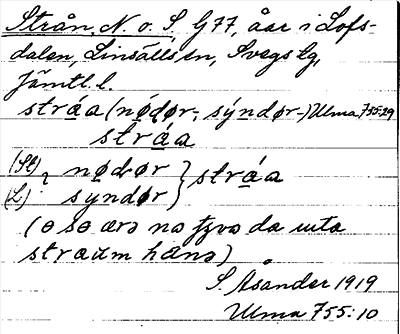 Strån, N. o. S, G77, åar i Lofs-
dalen, Linsälls sn, Svegs tg,
Jämtl. l.
stráa (nǿdør-, sýndør-) Ulma 755:29
stráa
(St) nødør } stráa
(L) syndør
(ɵ sɵ ærə no tjzvə da uta
straum hanə)
S. Åsander 1919
Ulma 755:10